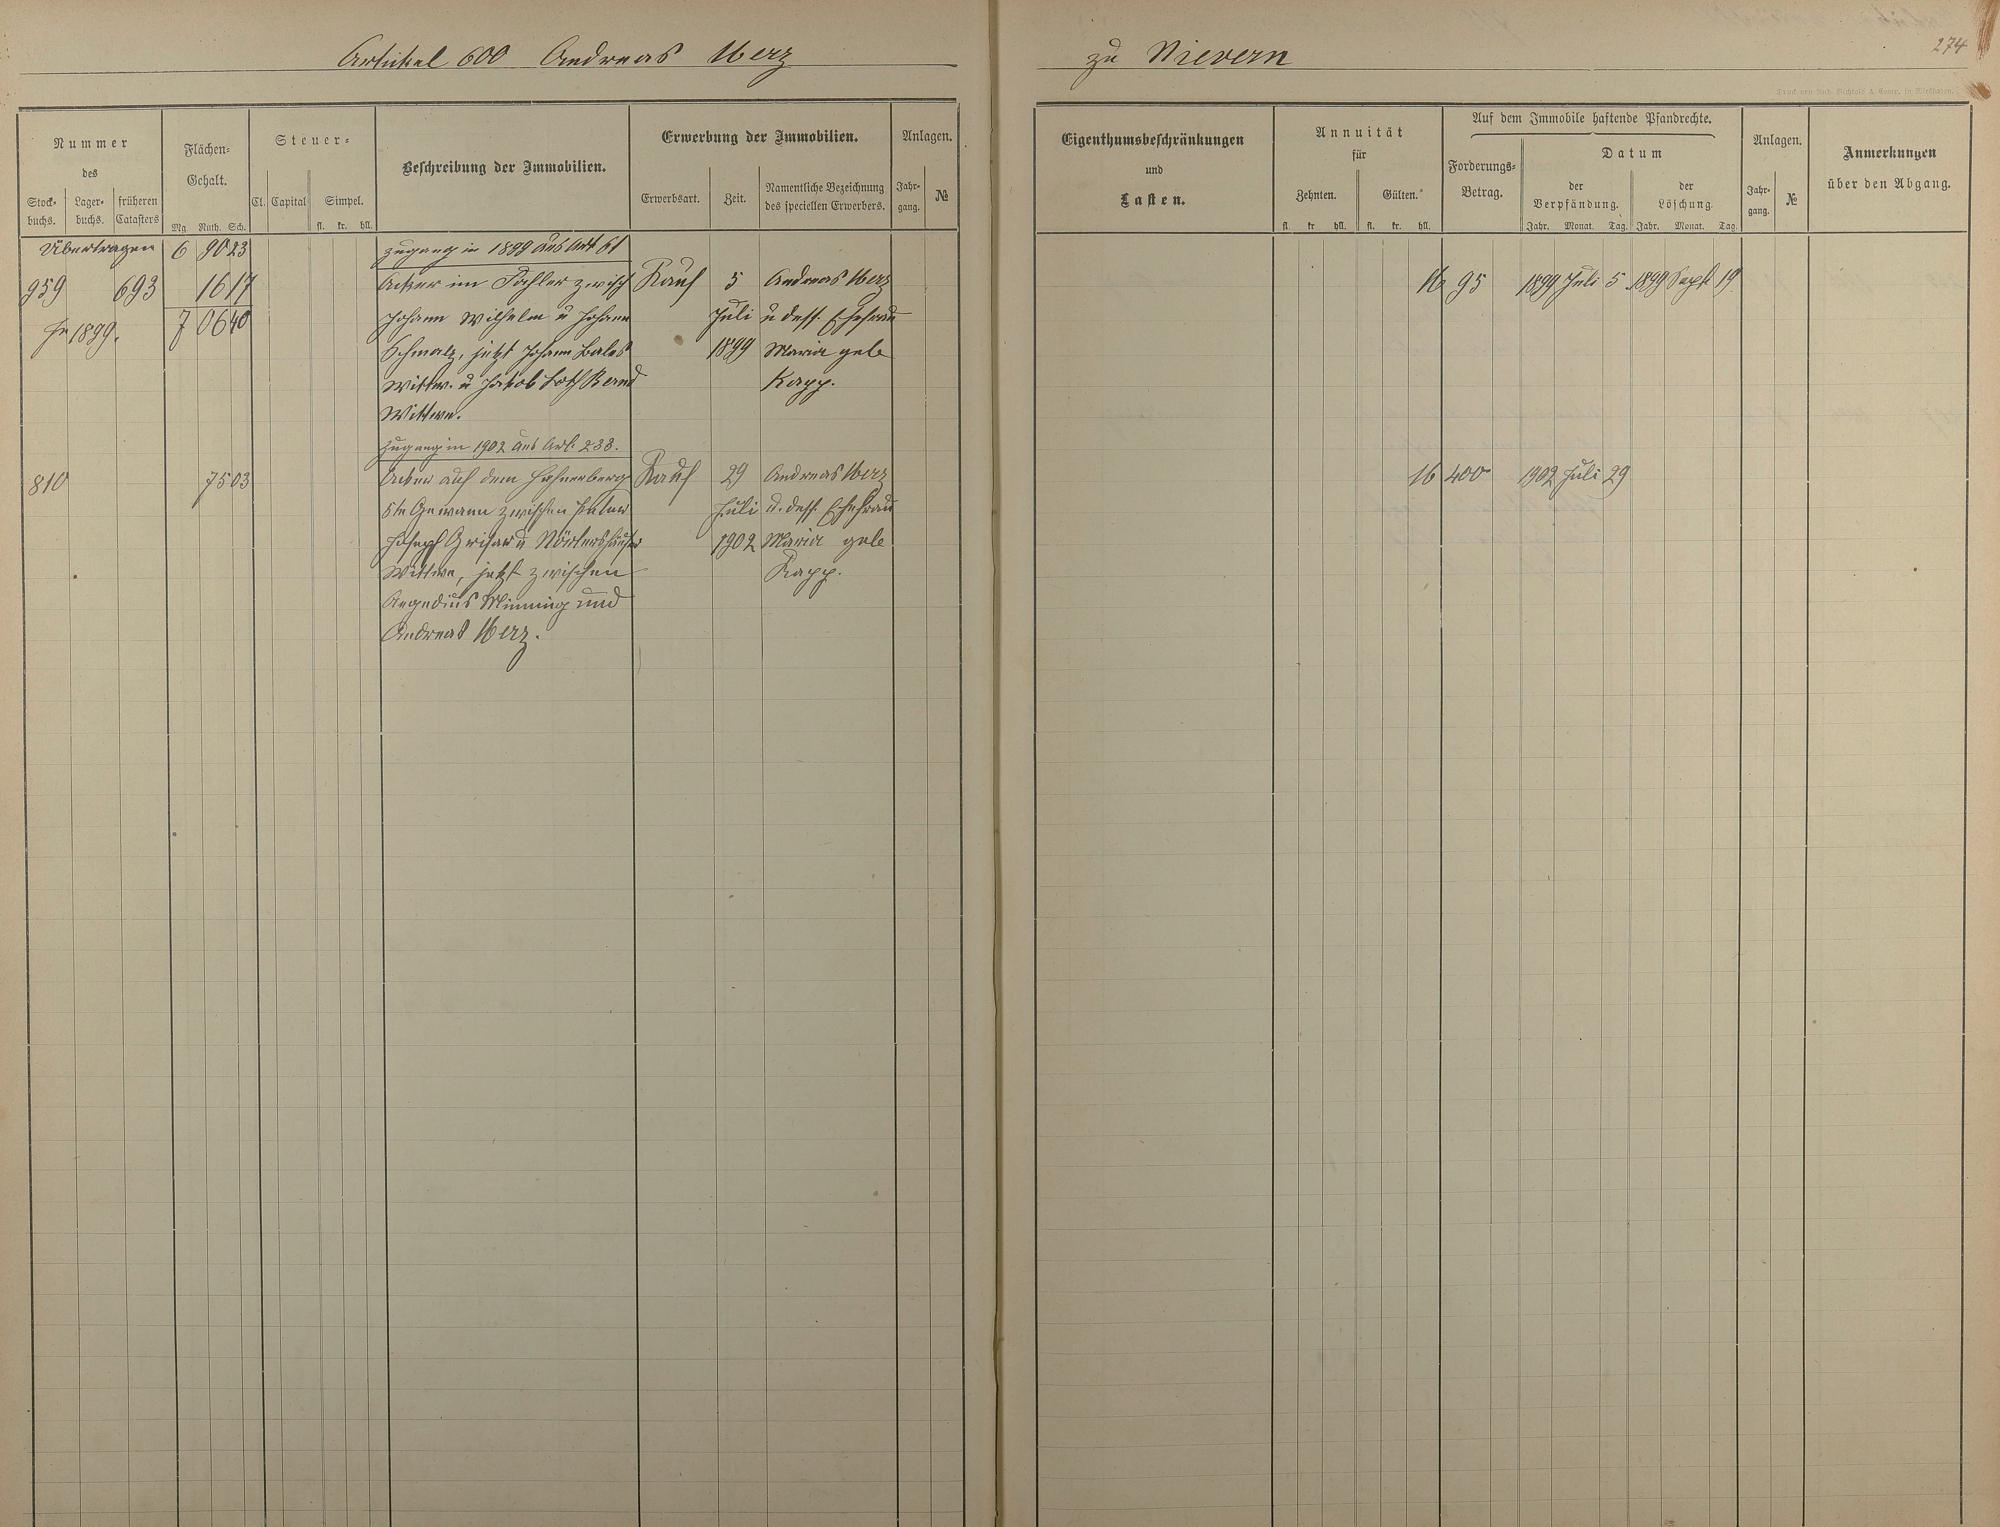 Artikel 600 Andreas Merz
Nummer
des
Stock-
buchs.
Lager-
buchs.
früheren
Catasters
Flächen-
Gehalt.
Mg. Ruth. Sch.
Steuer-
Cl. Capital Simpel.
fl. kr. hll.
Beschreibung der Immobilien.
Erwerbung der Immobilien.
Erwerbsart. Zeit.
Namentliche Bezeichnung
des speciellen Erwerbers.
Anlagen.
Jahr-
gang.
№
Übertragen 6 90 23 Zugang in 1899 aus Art 61
959 693 16 17 Acker im Fahler zwisch Kauf 5 Andreas Merz
Johann Wilhelm u Johann Juli u dess. Ehefrau
In 1899. 7 06 40
Schmalz, jetzt Johann Bales 1899 Maria geb
Wittw. u Jakob Kapp.
Wittwe.
Zugang in 1902 aus Art. 233.
810 75 03 Acker auf dem Hahnenberg Kauf 29 Andreas Merz
6te Gewann zwischen Juli u. dess. Ehefrau
Joseph Grisar u Nörtershäuser 1902 Maria geb
Wittwe, jetzt zwischen Kapp.
Aegedius Minning und
Andreas Merz.
zu Nievern
274
Druck von Rud. Bechtold & Comp. in Wiesbaden.
Eigenthumsbeschränkungen
und
Lasten.
Annuität
für
Zehnten. Gülten.
fl. kr hll. fl. kr. hll.
Auf dem Immobile haftende Pfandrechte.
Forderungs-
Betrag.
Datum
der
Verpfändung.
Jahr. Monat. Tag.
der
Löschung.
Jahr. Monat. Tag.
Anlagen.
Jahr-
gang.
№
Anmerkungen
über den Abgang.
95 1899 Juli 5 1899 Sept 19
400 1902 Juli 29